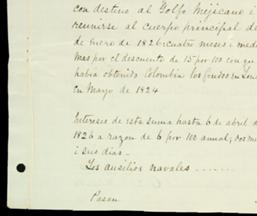 con destino al Golfo Mejicano i
reunirse al cuerpo principal de
de Enero de 1826 cuatro meses i med
Mas por el descuento de 15 por 100 con qu
habia obtenido Colombia los fondos en Lon
en Mayo de 1824
Intereses de esta suma hasta 6 de abril d
1826 a razon de 6 por 100 annual, dos me
i seis dias
Los ausilios navales
Pasan